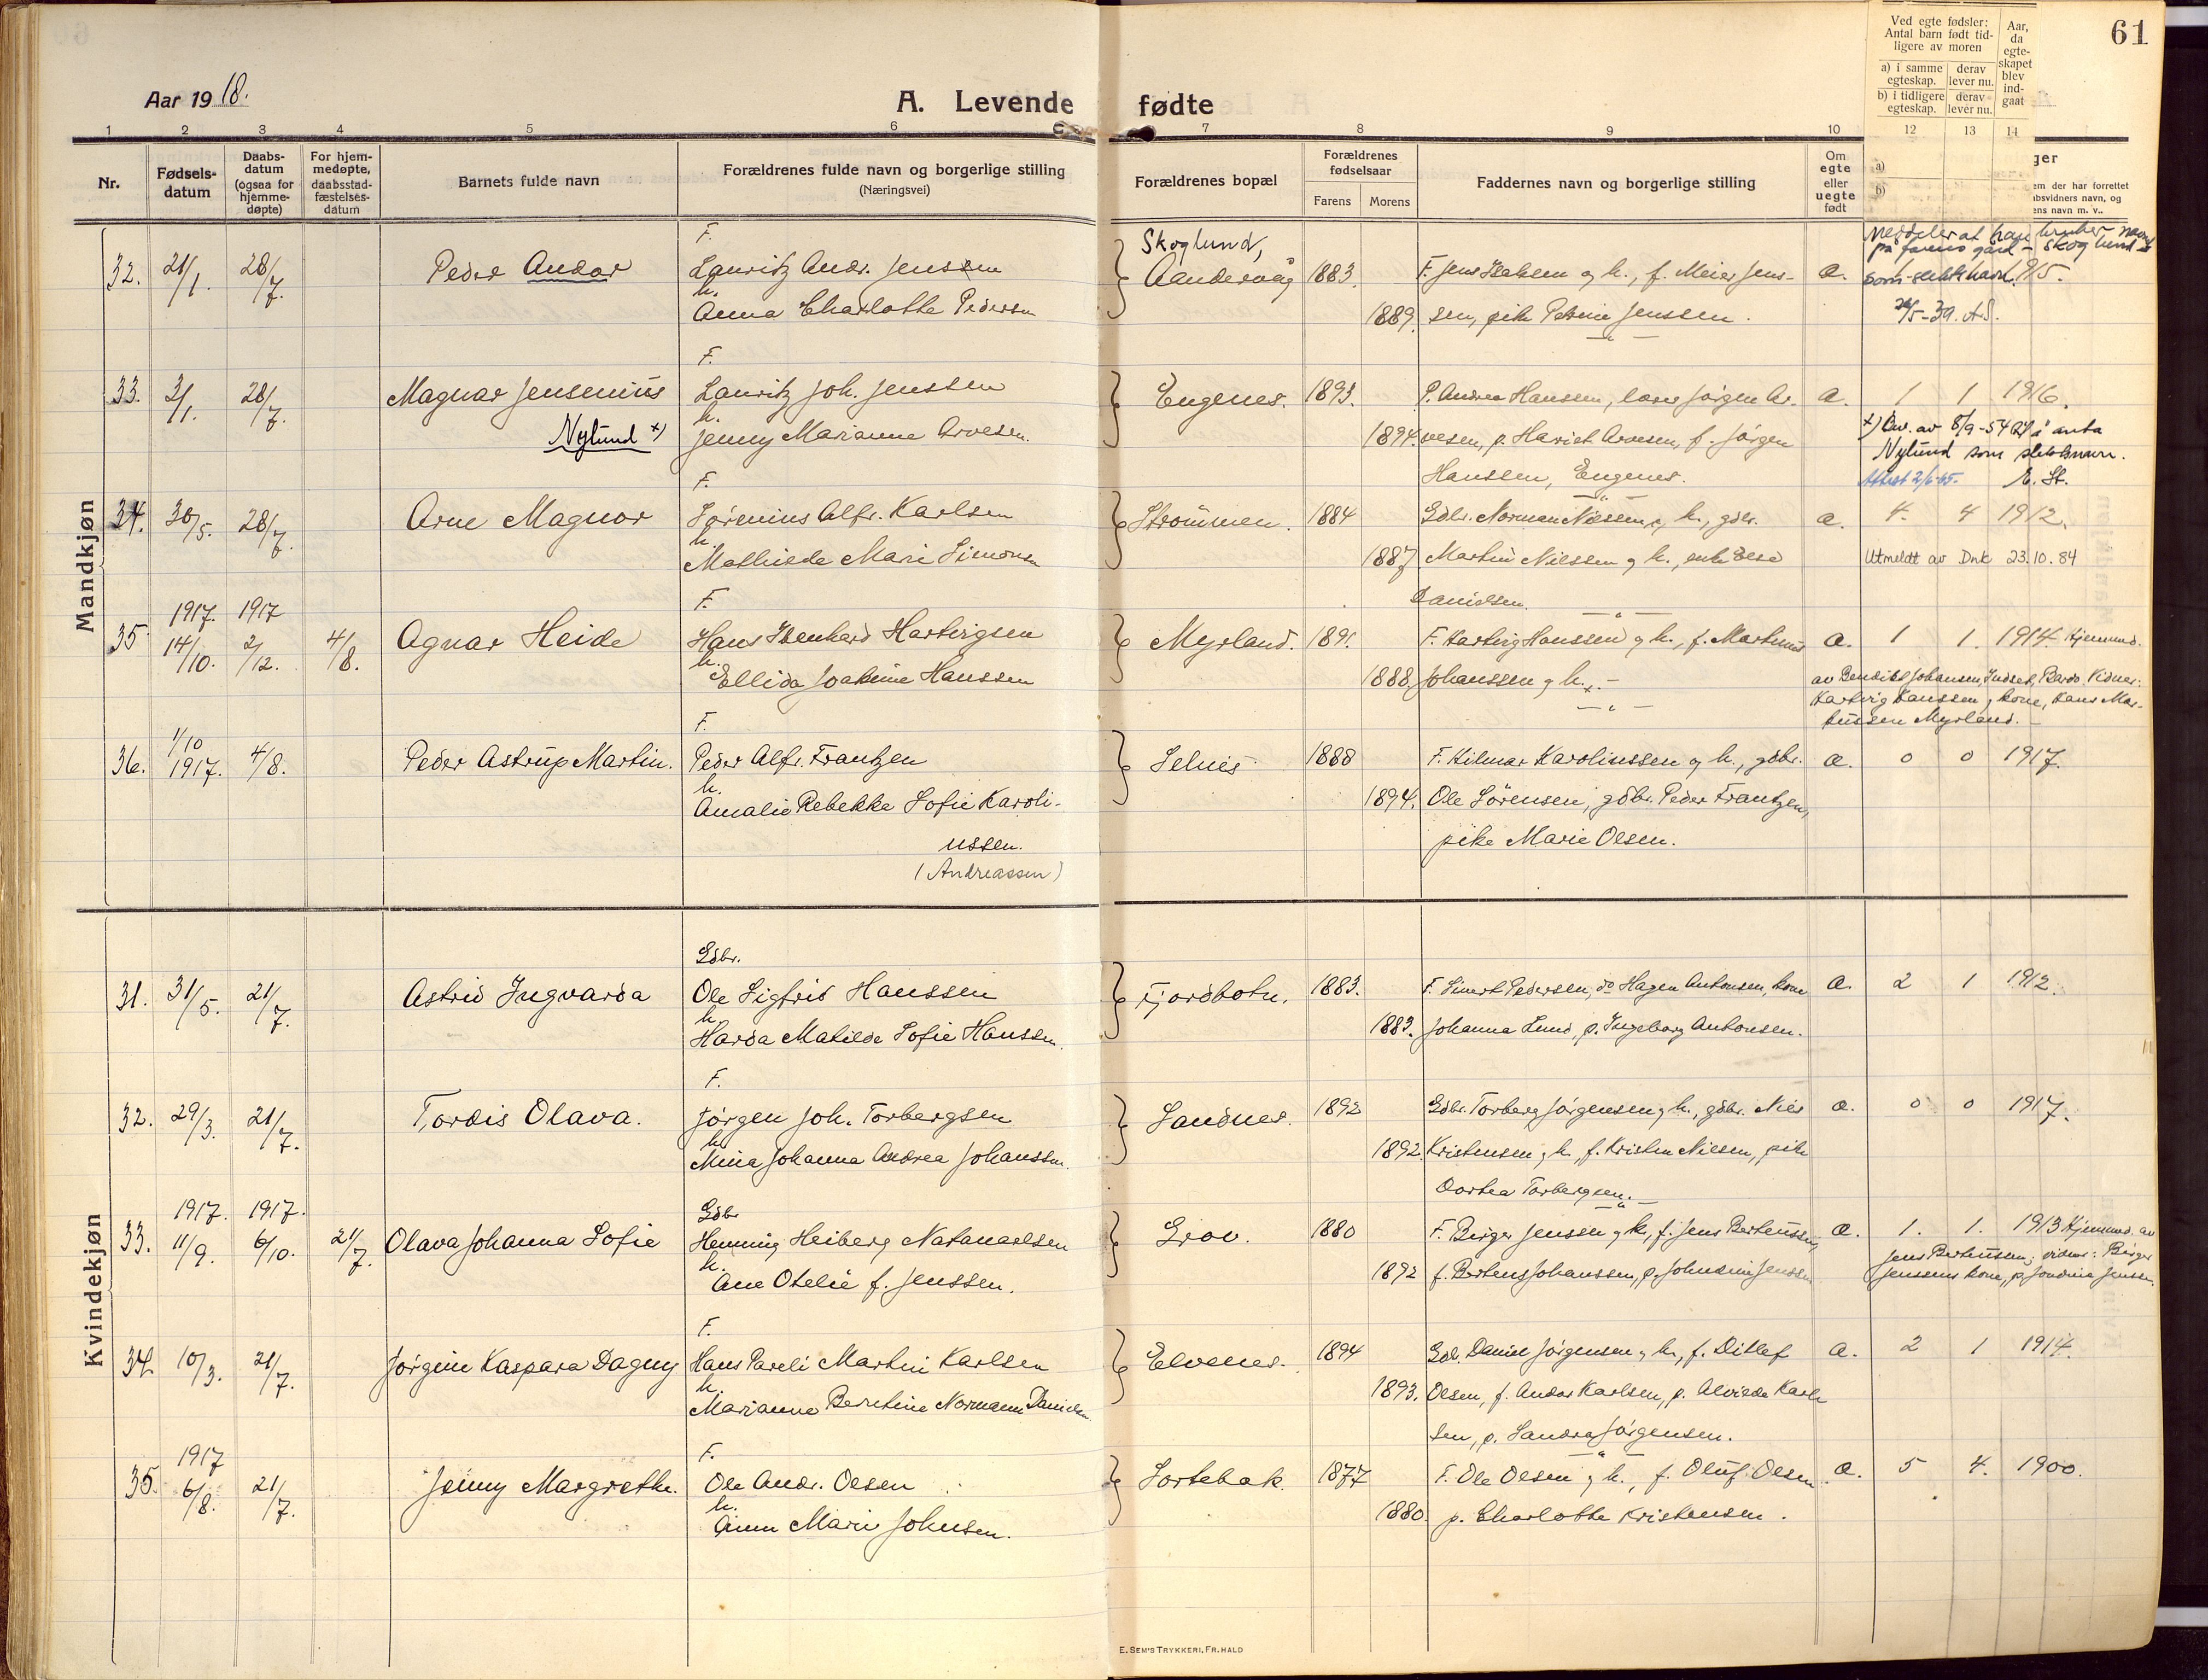 61
Aar 1918.
A. Levende fødte
Ved egte fødsler:
Antal barn født tid-
ligere av moren
a) i samme egteskap.
derav lever nu.
b) i tidligere egteskap.
derav lever nu.
Aar, da egte-skapet blev ind-gaat
1 2 3 4 5 6 7 8 9 10 12 13 14
Nr.
Fødsels-datum
Daabs-datum (ogsaa for hjemme-døpte)
For hjem-medøpte, daabsstad-fæstelses-datum
Barnets fulde navn
Forældrenes fulde navn og borgerlige stilling
(Næringsvei)
Forældrenes bopæl
Forældrenes fødselsaar
Farens
Morens
Faddernes navn og borgerlige stilling
Om egte eller uegte født
a)
b)
ger
em der har forrettet
absvidners navn, og
ens navn m. v..
Mandkjøn
32. 21/1. 28/7. Peder Andor
F.
Lauritz Andr. Jenssen
h.
Anna Charlotte Pedersen
Skoglund,
Aandervåg 1883.
1889.
F. Jens Hansen og h., f. Meier Jens-
sen, pike Petrine Jenssen.
a.
Meddeler at han bruker navnet
på farens gård - Skoglund -
som slektsnavn. 1915.
26/5-39. A.S.
33. 3/1. 28/7. Magnar Jensenius
Nylund x)
F.
Lauritz Joh. Jenssen
h.
Jenny Marianne Arvesen.
Engenes. 1893.
1894.
P. Andrea Hanssen, lærer Jörgen Ar-
vesen, p. Hariet Arvesen, f. Jörgen
Hanssen, Engenes.
a. 1 1 1916.
x) Bev. av 8/9-54 til å anta
Nylund som slektsnavn.
Attest 2/6-65. E. St.
34. 30/5. 28/7. Arne Magnor
F.
Sörenius Alfr. Karlsen
h.
Mathilde Mari Simonsen
Strömmen. 1884
1887
Gdbr. Norman Nilssen og h., gdbr.
Martin Nilssen og h., enke
Danielsen.
a. 4. 4 1912.
Utmeldt av Dnk 23.10.84
35 1917. 14/10. 1917 2/12. 4/8. Agnar Heide
F.
Hans Ibenhard Hartvigsen
h.
Ellida Joakime Hanssen
Myrland. 1891.
1888.
F. Hartvig Hanssen og h., f. Martinus
Johanssen og h.
a. 1 1. 1914. Hjemmed.
av Bendikt Johansen, Indset, Bardo. Vidner:
Hartvig Hanssen og kone, Hans Mar-
tinssen Myrland.
36. 1/10 1917. 4/8. Peder Astrup Martin.
F.
Peder Alfr. Frantzen
h.
Amalie Rebekke Sofie Karoli-
ussen.
(Andreassen)
Selnes 1888
1894.
F. Hilmar Karoliussen og h., gdbr.
Ole Sörensen, gdbr. Peder Frantzen,
pike Marie Olsen.
a. 0 0 1917.
Kvindekjøn
31. 31/5. 21/7. Astrid Ingvarda
Gdbr.
Ole Sigfrid Hanssen
h.
Harda Matilde Sofie Hanssen.
Fjordbotn. 1883.
1883.
F. Sivert Pedersen, do Hagen Antonsen, kone
Johanna Lund, p. Ingeborg Antonsen.
a. 2 1 1912.
32. 29/3. 21/7. Tordis Olava.
F.
Jörgen Joh. Torbergsen
h.
Mina Johanna Andrea Johanssen.
Sandnes. 1892
1892.
Gdbr. Torberg Jörgensen og h., gdbr. Nils
Kristensen og h., f. Kristen Nilsen, pike
Dortea Torbergsen.
a. 0 0 1917.
33. 1917. 11/9. 1917. 6/10. 21/7. Olava Johanna Sofie
Gdbr.
Henning Heiberg Natanaelsen
h.
Ane Otelie f. Jenssen.
Grov. 1880
1892
F. Birger Jenssen og h., f. Jens Bertenssen,
f. Bertens Johanssen, p. Jensen
a. 1. 1. 1913 Hjemmed. av
Jens Bertenssen; vidner: Birger
Jenssens kone, p. Jenssen.
34. 10/3. 21/7. Jörgine Kaspara Dagny
F.
Hans Pareli Martin Karlsen
h.
Marianne Berntine Normann Danielsen.
Elvenes. 1894
1893.
Gdb. Daniel Jörgensen og h., f. Ditlef
Olsen, f. Andor Karlsen, p. Alvilde Karl-
sen, p. Sandra Jörgensen.
a. 2 1 1914.
35. 1917 6/8. 21/7. Jenny Margrethe.
F.
Ole Andr. Olsen
h.
Anna Marie Johnsen.
Sortebak. 1877
1880.
F. Ole Olsen og h., f. Oluf Olsen
p. Charlotte Kristensen.
a. 5 4. 1900.
E. SEM'S TRYKKERI, FR.HALD